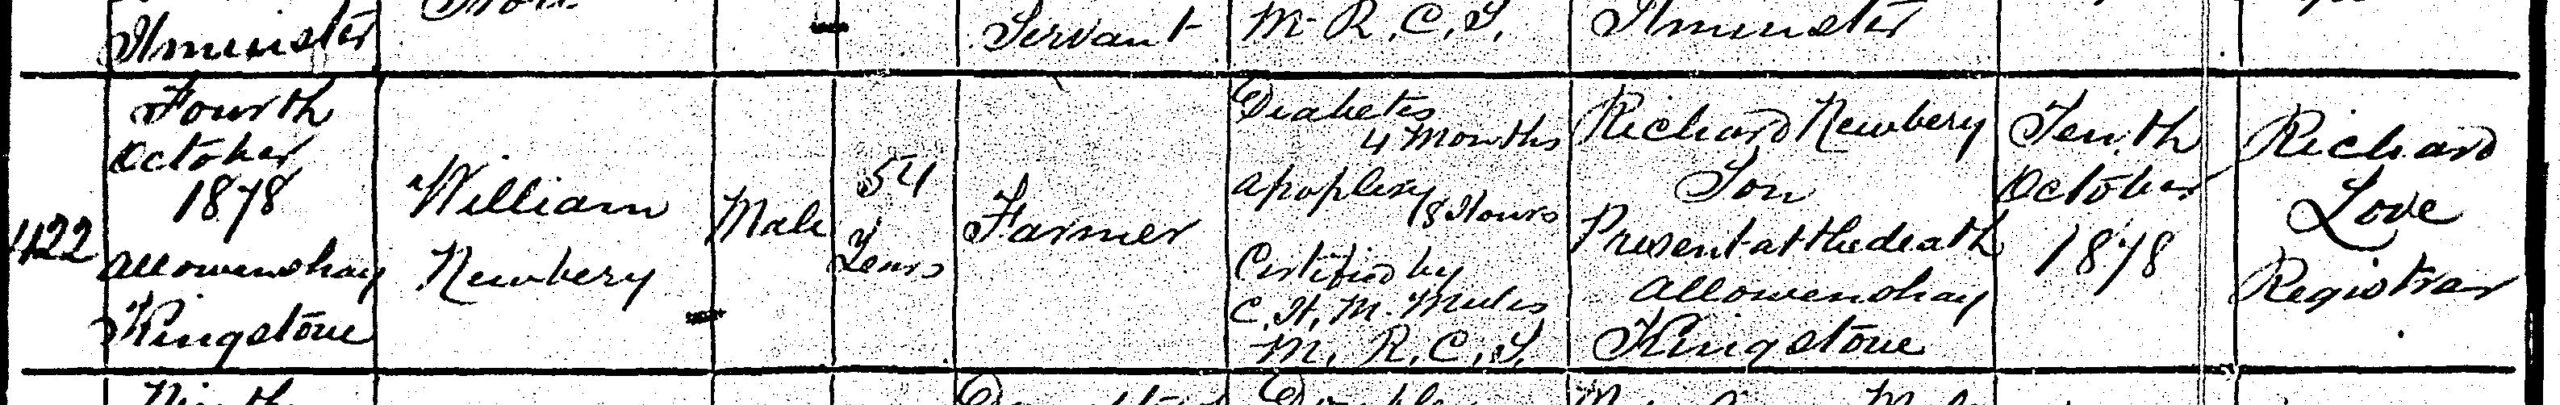 Ilminster
Servant
M. R. C. S.
Ilminster
422
Fourth
October
1878
Allowenshay
Kingstone
William
Newbery
Male
54
Years
Farmer
Diabetes
4 Months
Apoplexy
18 Hours
Certified by
C. H. M. Mules
M. R. C. S.
Richard Newbery
Son
Present at the death
Allowenshay
Kingstone
Tenth
October
1878
Richard
Love
Registrar